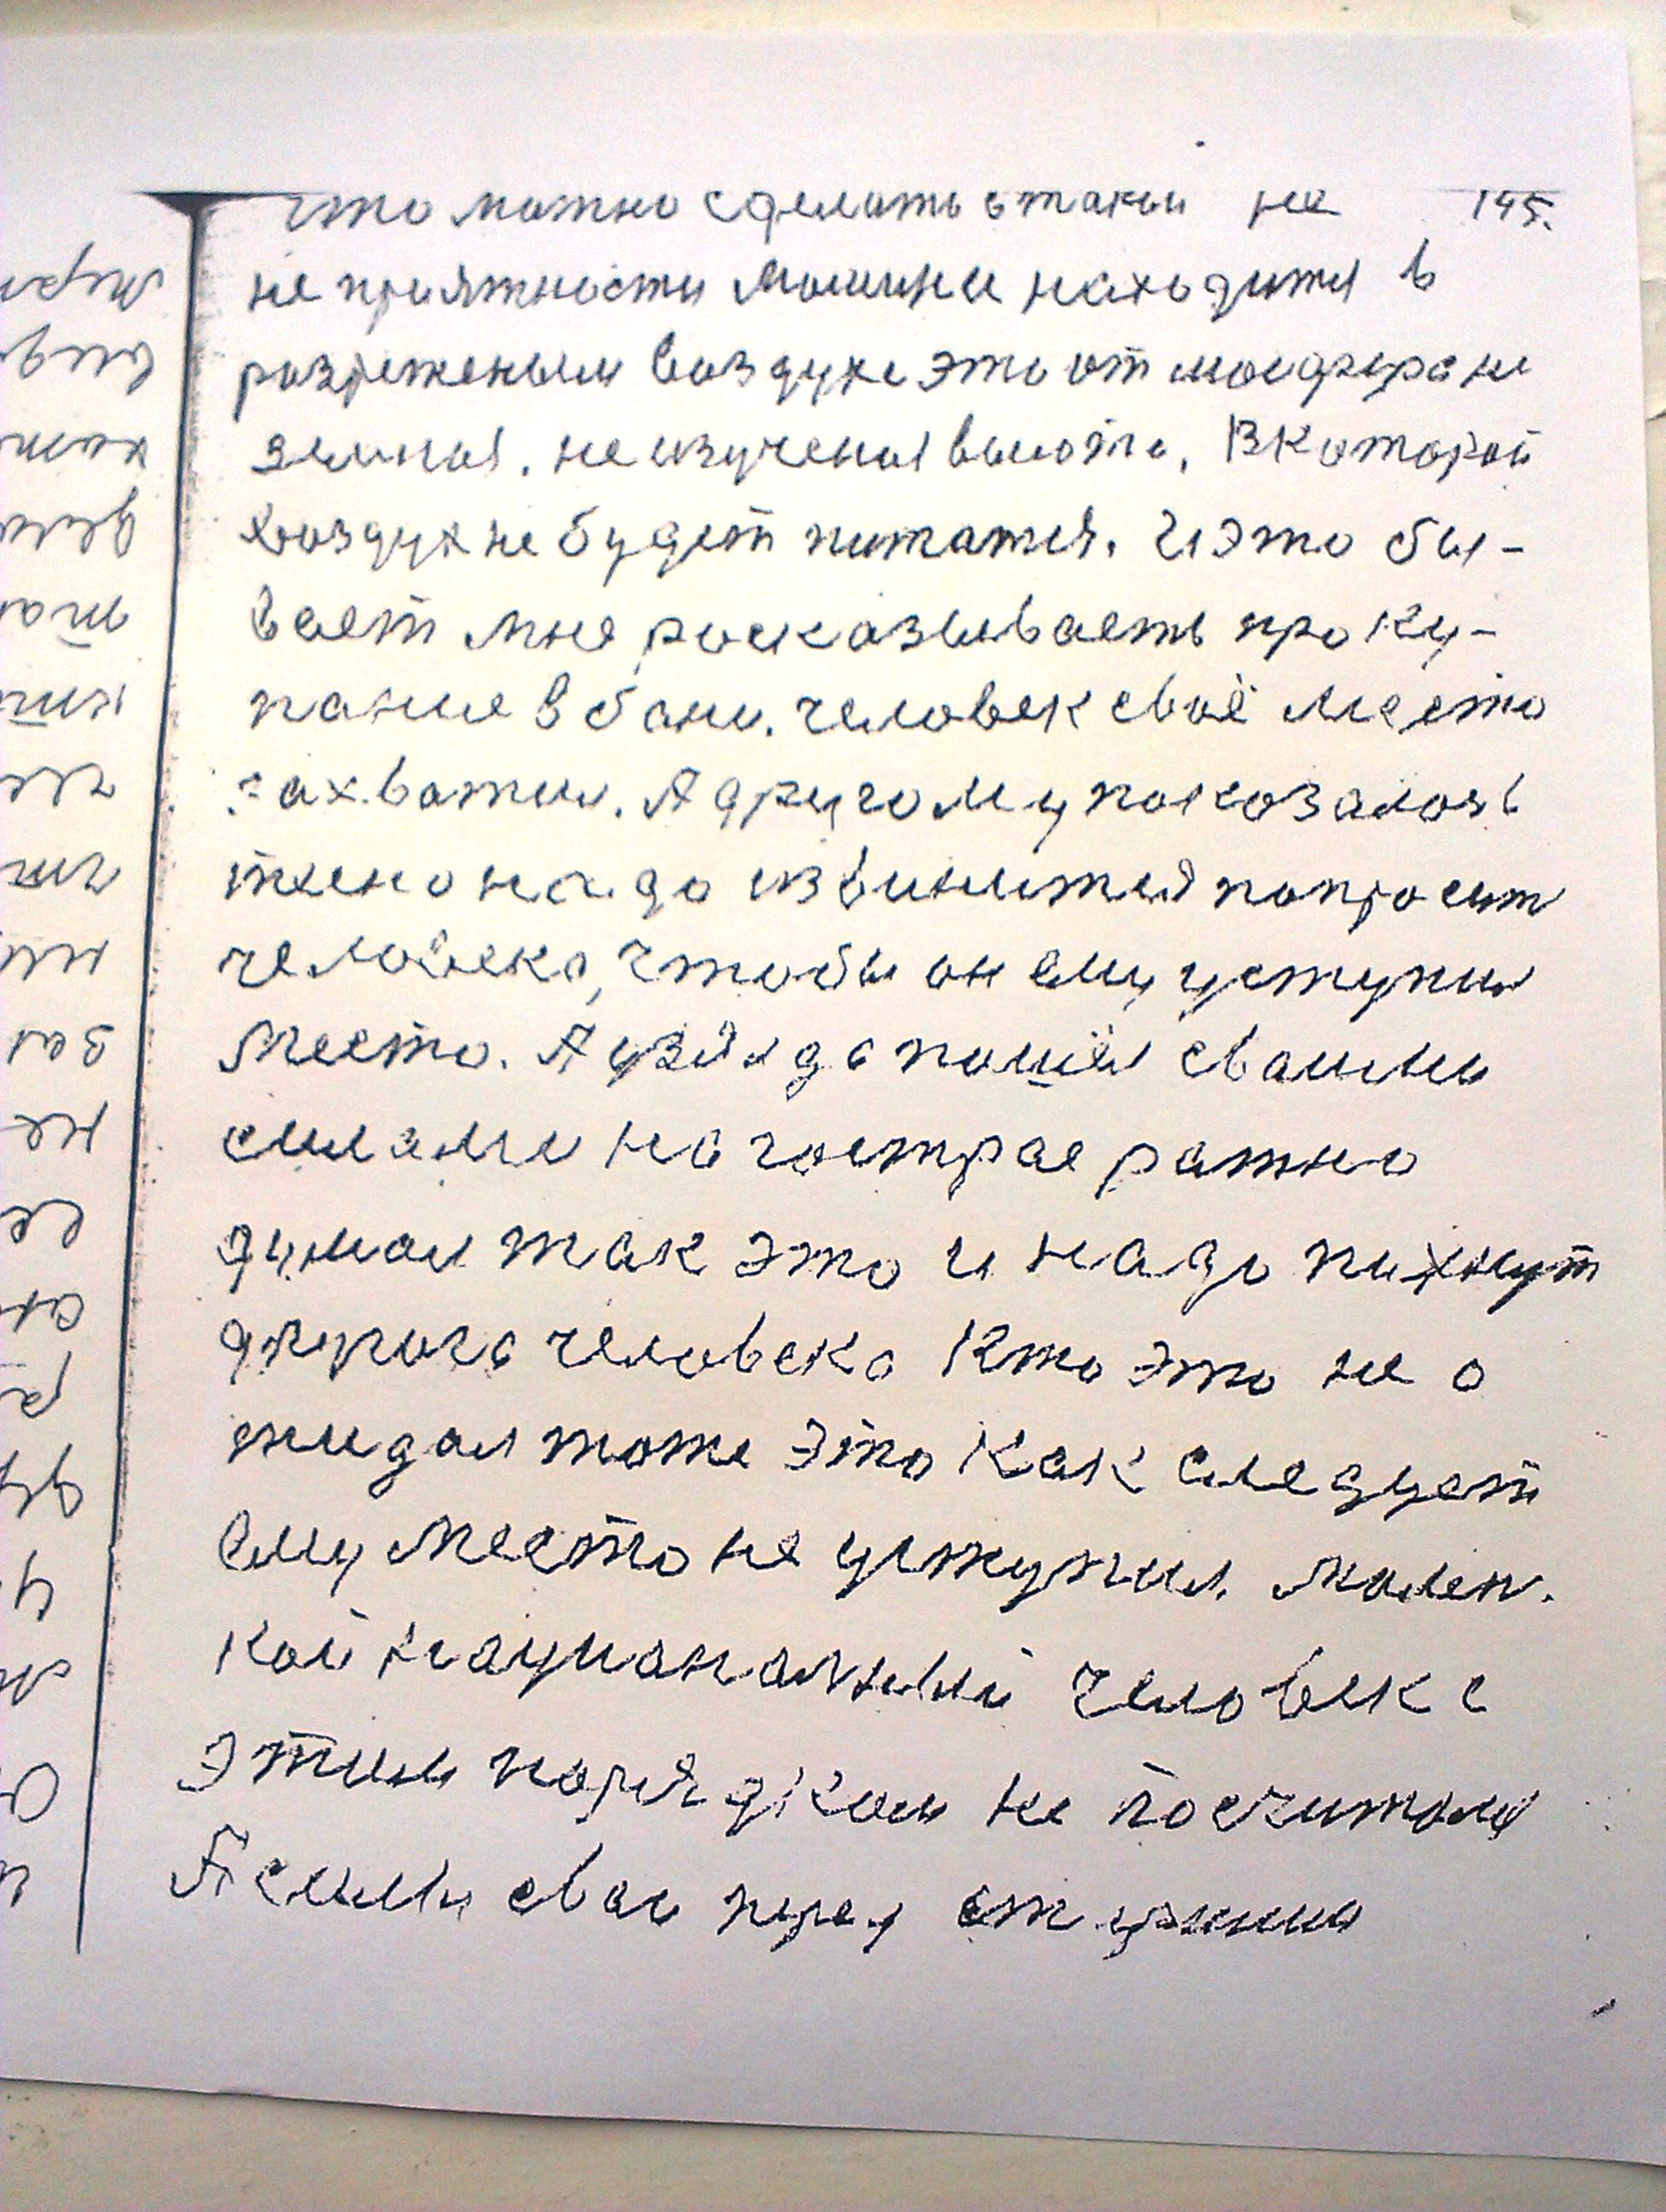 что можно сделать в такой не 145.
не приятности машине находится в
разреженым воздухе это отмосфера не
земная. не изученая высота. В которой
воздух не будет питатся. И это бы-
вает мне расказывать про ку-
пание в бани. человек своё место
захватил. А другому показалось
тесно надо извинится попросит
человека, чтобы он ему уступил
место. А взял да пошёл своими
силами на гострае ратно
думал так это и надо пихнут
другога человека Кто это не о
жидал тоже это как следует
ему место не уступил. мален.
кой национальный человек с
этим порядком не посчитался
А силы свои